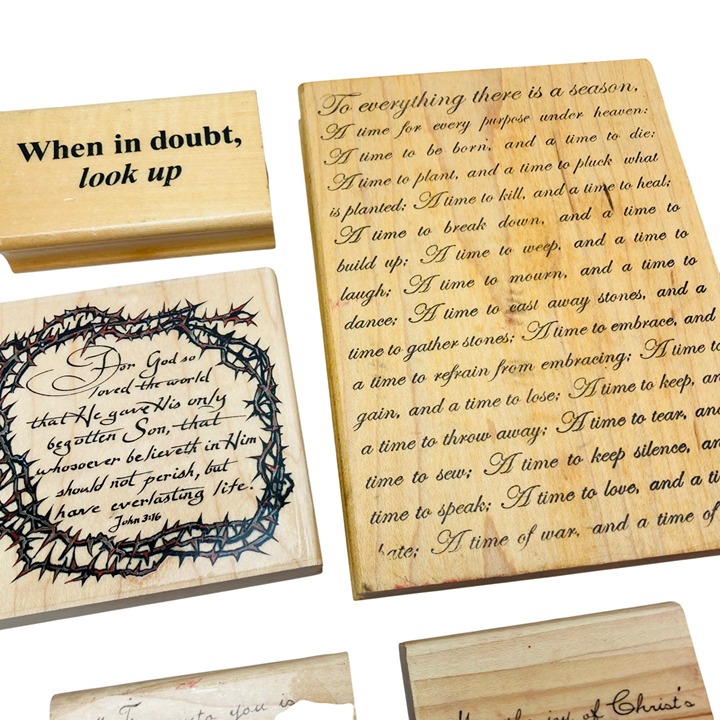 When in doubt,
look up
To everything there is a season,
A time for every purpose under heaven:
A time to be born, and a time to die;
A time to plant, and a time to pluck what
is planted; A time to kill, and a time to heal;
A time to break down, and a time to
build up; A time to weep, and a time to
laugh; A time to mourn, and a time to
dance; A time to cast away stones, and a
time to gather stones; A time to embrace, and
a time to refrain from embracing; A time to
gain, and a time to lose; A time to keep, an
a time to throw away; A time to tear, an
time to sew; A time to keep silence, an
time to speak; A time to love, and a ti
hate; A time of war, and a time of
For God so
loved the world
that He gave His only
begotten Son, that
whosoever believeth in Him
should not perish, but
have everlasting life.
John 3:16
to you is
joy of Christ's